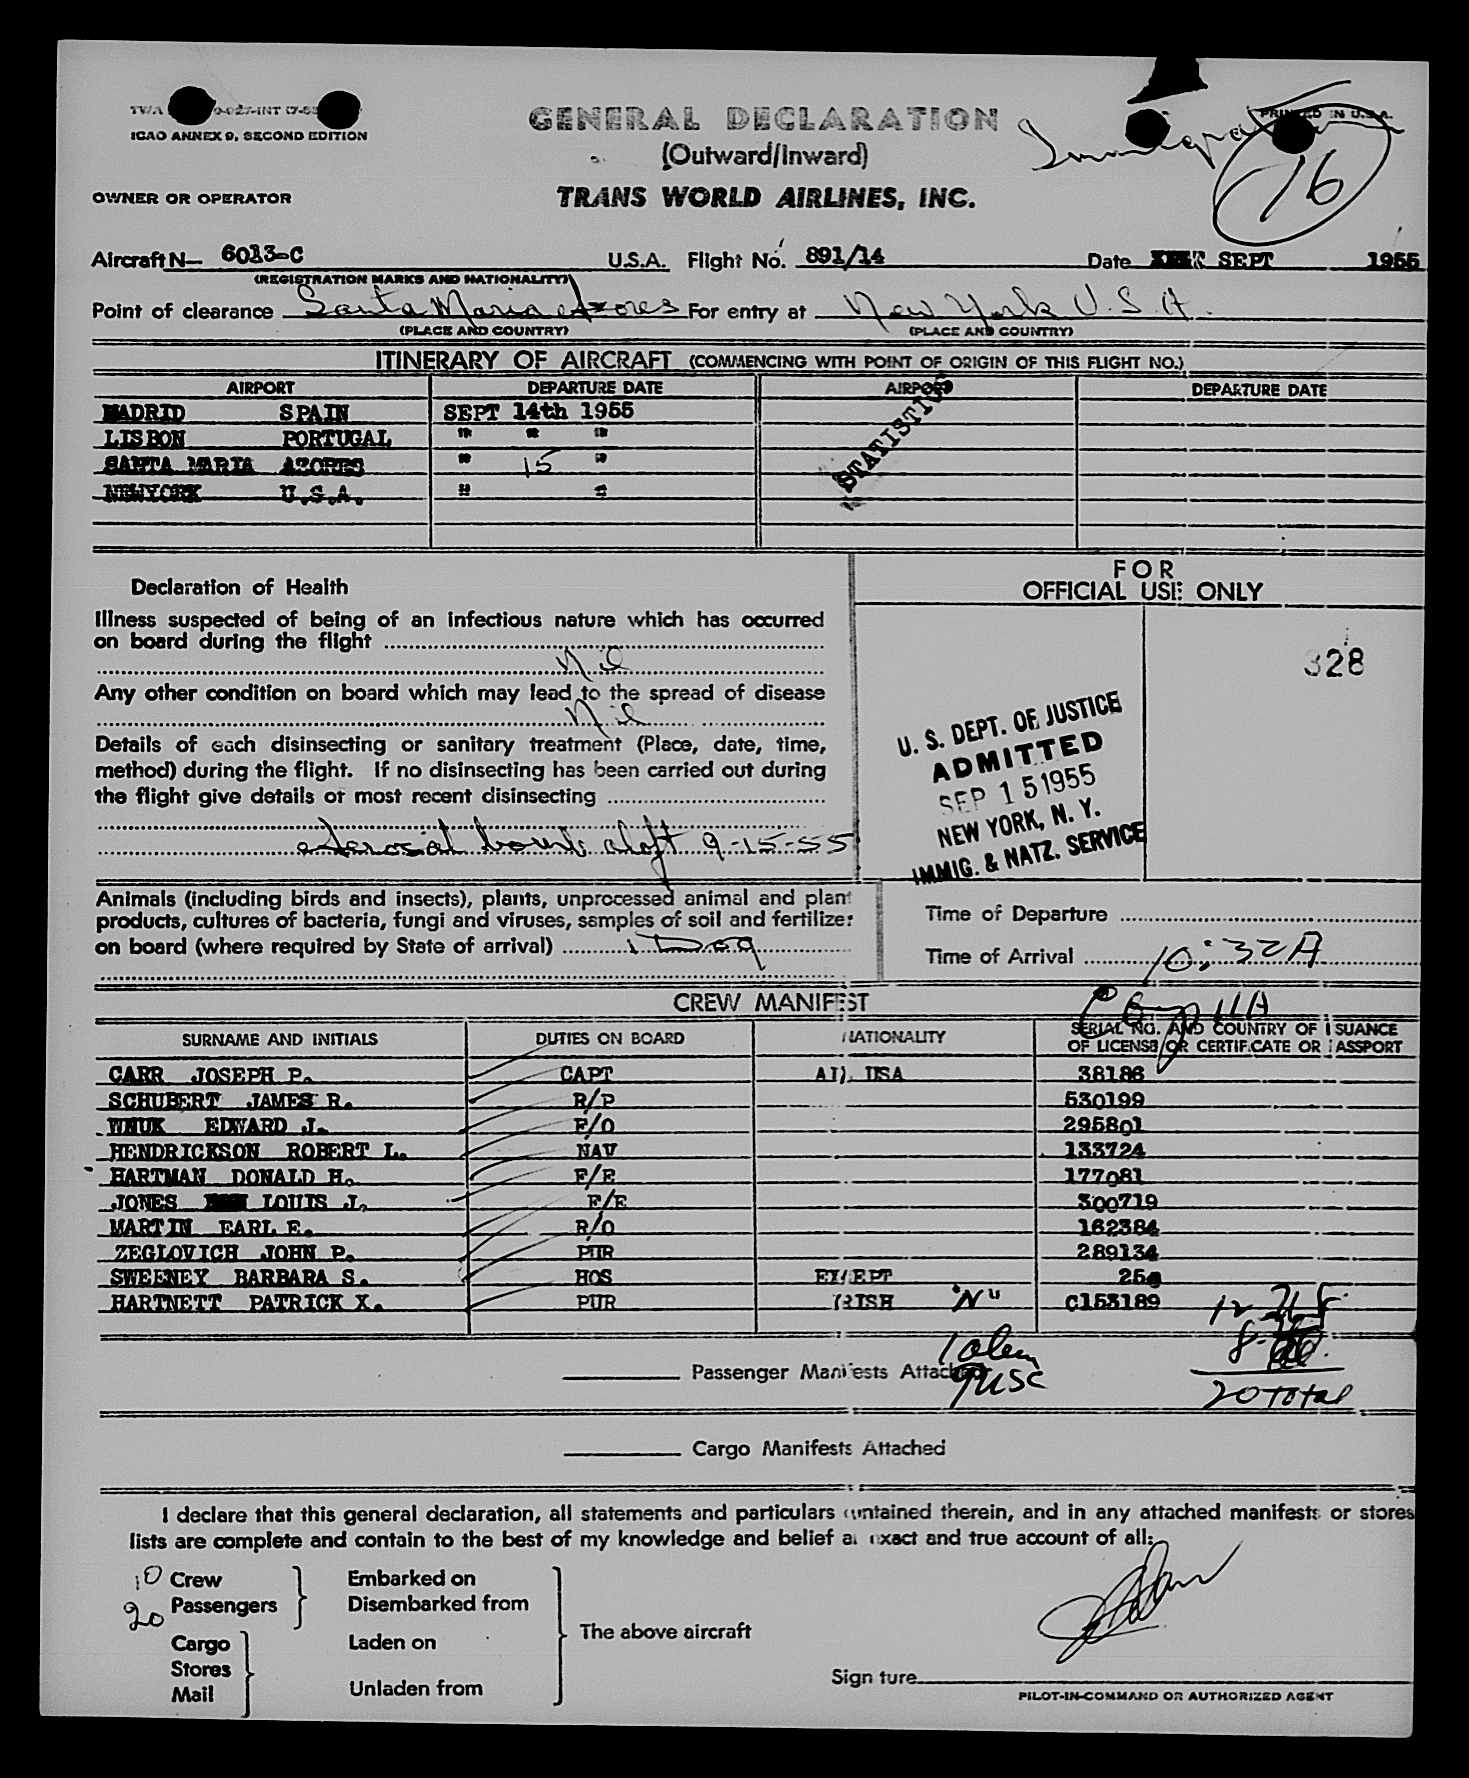 ICAO ANNEX 9, SECOND EDITION
GENERAL DECLARATION
(Outward/Inward)
PRINTED IN U.S.A.
16
OWNER OR OPERATOR
TRANS WORLD AIRLINES, INC.
Aircraft N— 6013-C U.S.A. Flight No. 891/14 Date SEPT 1955
(REGISTRATION MARKS AND NATIONALITY)
Point of clearance Santa Maria Azores For entry at New York U.S.A.
(PLACE AND COUNTRY) (PLACE AND COUNTRY)
ITINERARY OF AIRCRAFT (COMMENCING WITH POINT OF ORIGIN OF THIS FLIGHT NO.)
AIRPORT DEPARTURE DATE AIRPORT DEPARTURE DATE
MADRID SPAIN SEPT 14th 1955
LISBON PORTUGAL " " "
SANTA MARIA AZORES " 15 "
NEWYORK U.S.A. " "
STATISTICS
Declaration of Health
Illness suspected of being of an infectious nature which has occurred
on board during the flight
Nil
Any other condition on board which may lead to the spread of disease
Nil
Details of each disinsecting or sanitary treatment (Place, date, time,
method) during the flight. If no disinsecting has been carried out during
the flight give details of most recent disinsecting
aerosol bomb aloft 9-15-55
FOR
OFFICIAL USE ONLY
328
U. S. DEPT. OF JUSTICE
ADMITTED
SEP 15 1955
NEW YORK, N. Y.
IMMIG. & NATZ. SERVICE
Animals (including birds and insects), plants, unprocessed animal and plant
products, cultures of bacteria, fungi and viruses, samples of soil and fertilizer
on board (where required by State of arrival) 1 Dog
Time of Departure
Time of Arrival 10:32A
CREW MANIFEST
SURNAME AND INITIALS DUTIES ON BOARD NATIONALITY SERIAL NO. AND COUNTRY OF ISSUANCE
OF LICENSE OR CERTIFICATE OR PASSPORT
CARR JOSEPH P. CAPT ALL USA 38186
SCHUBERT JAMES R. R/P 530199
WNUK EDWARD J. F/O 295801
HENDRICKSON ROBERT L. NAV 133724
HARTMAN DONALD H. F/E 177081
JONES LOUIS J. F/E 300719
MARTIN EARL E. R/O 162384
ZEGLOVICH JOHN P. PUR 289134
SWEENEY BARBARA S. HOS EXCEPT
HARTNETT PATRICK X. PUR IRISH "N" C153189
Passenger Manifests Attached
1 alien
9 USC
20 Total
Cargo Manifests Attached
I declare that this general declaration, all statements and particulars contained therein, and in any attached manifests or stores
lists are complete and contain to the best of my knowledge and belief an exact and true account of all:
10 Crew Embarked on
20 Passengers Disembarked from
The above aircraft
Cargo Laden on
Stores
Mail Unladen from
Signature
PILOT-IN-COMMAND OR AUTHORIZED AGENT